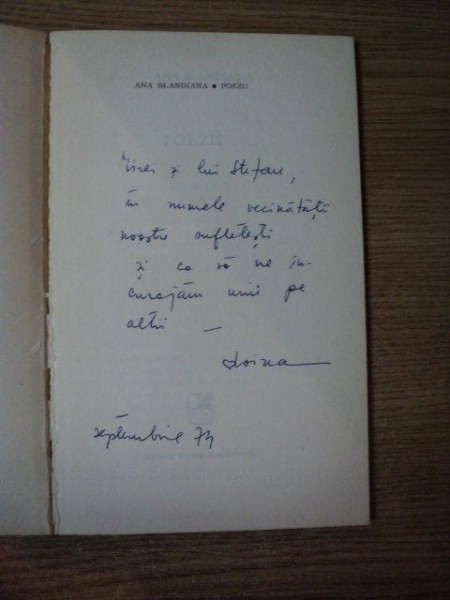 ANA BLANDIANA • POEZII
POEZII
și lui Ștefan,
în numele vecinătății
noastre sufletești
și ca să ne în-
curajăm unii pe
alții —
Doina
septembrie 74